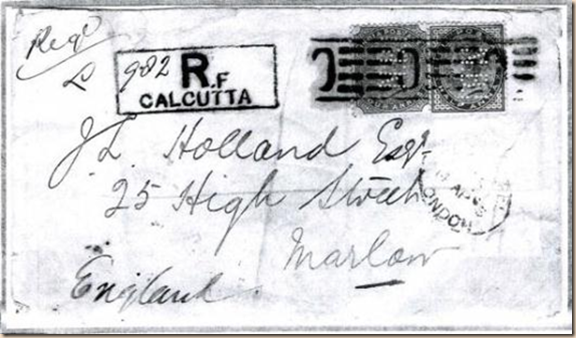 Regd
982 R.F
CALCUTTA
J L Holland Esqr
25 High Street
Marlow
England
LONDON